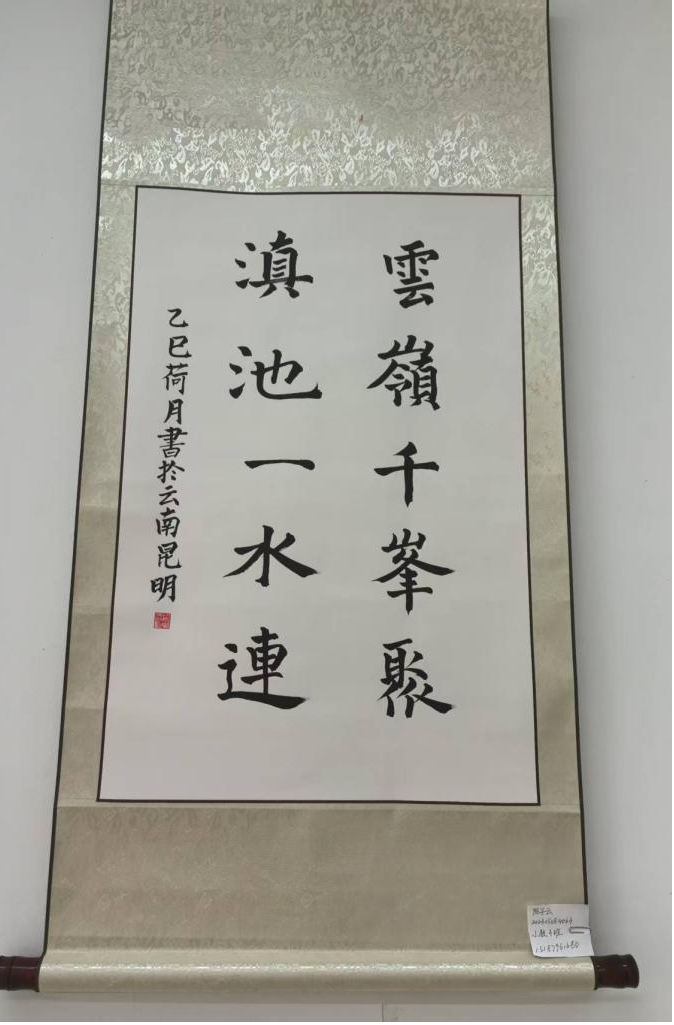 雲嶺千峯聚
滇池一水連
乙巳荷月書於云南昆明